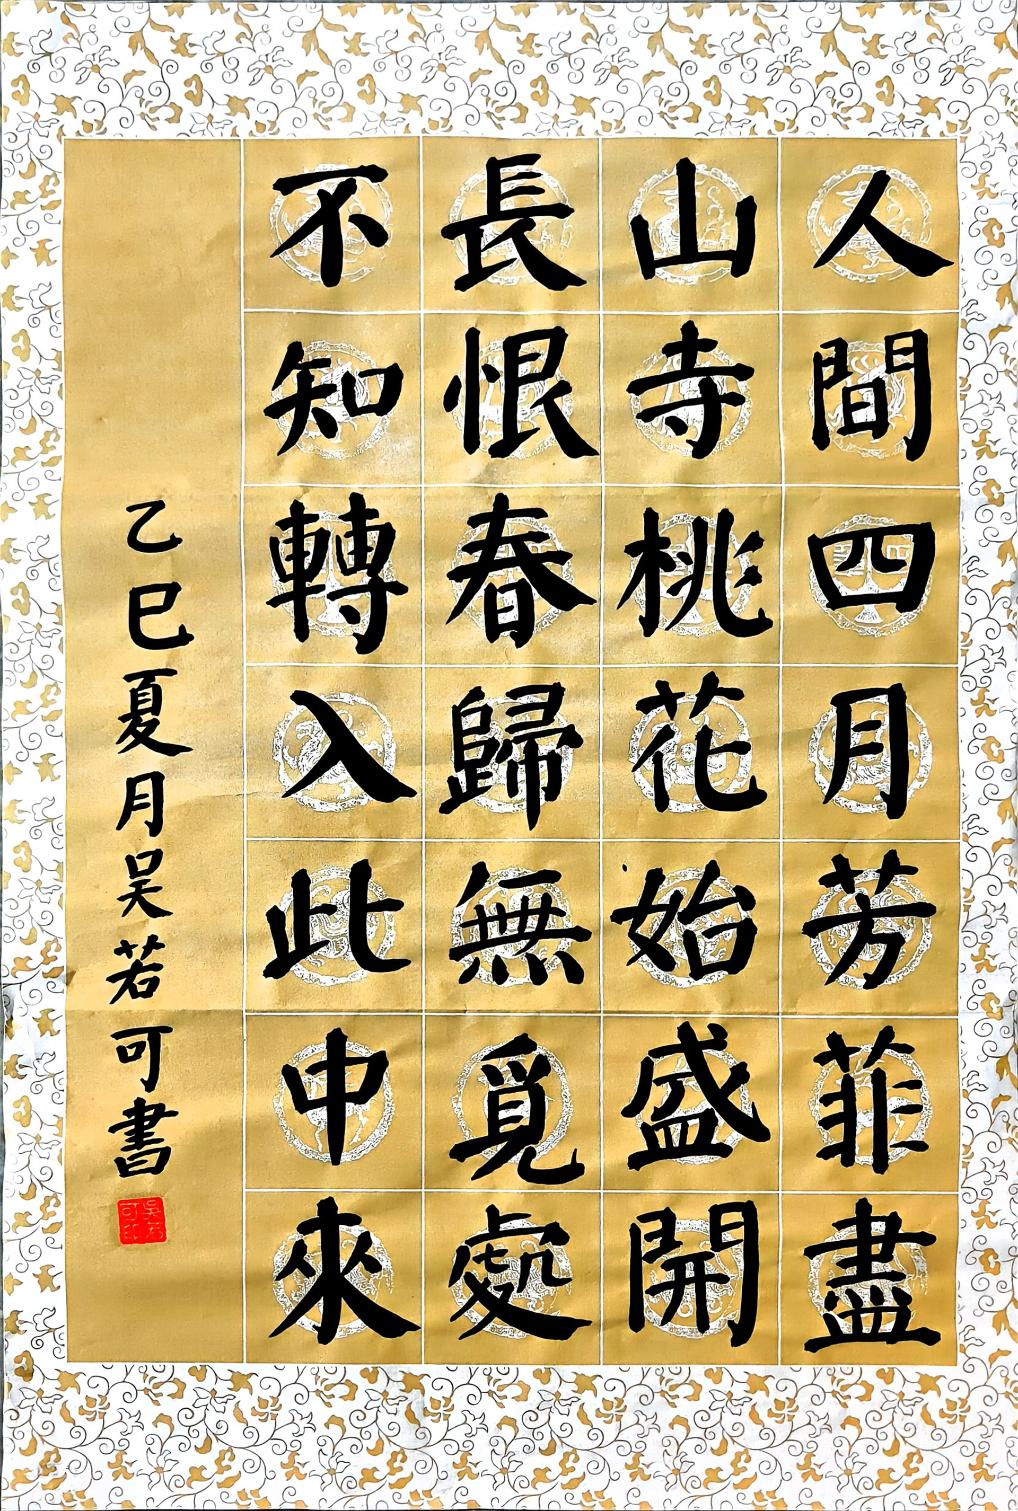 人間四月芳菲盡
山寺桃花始盛開
長恨春歸無覓處
不知轉入此中來
乙巳夏月吳若可書